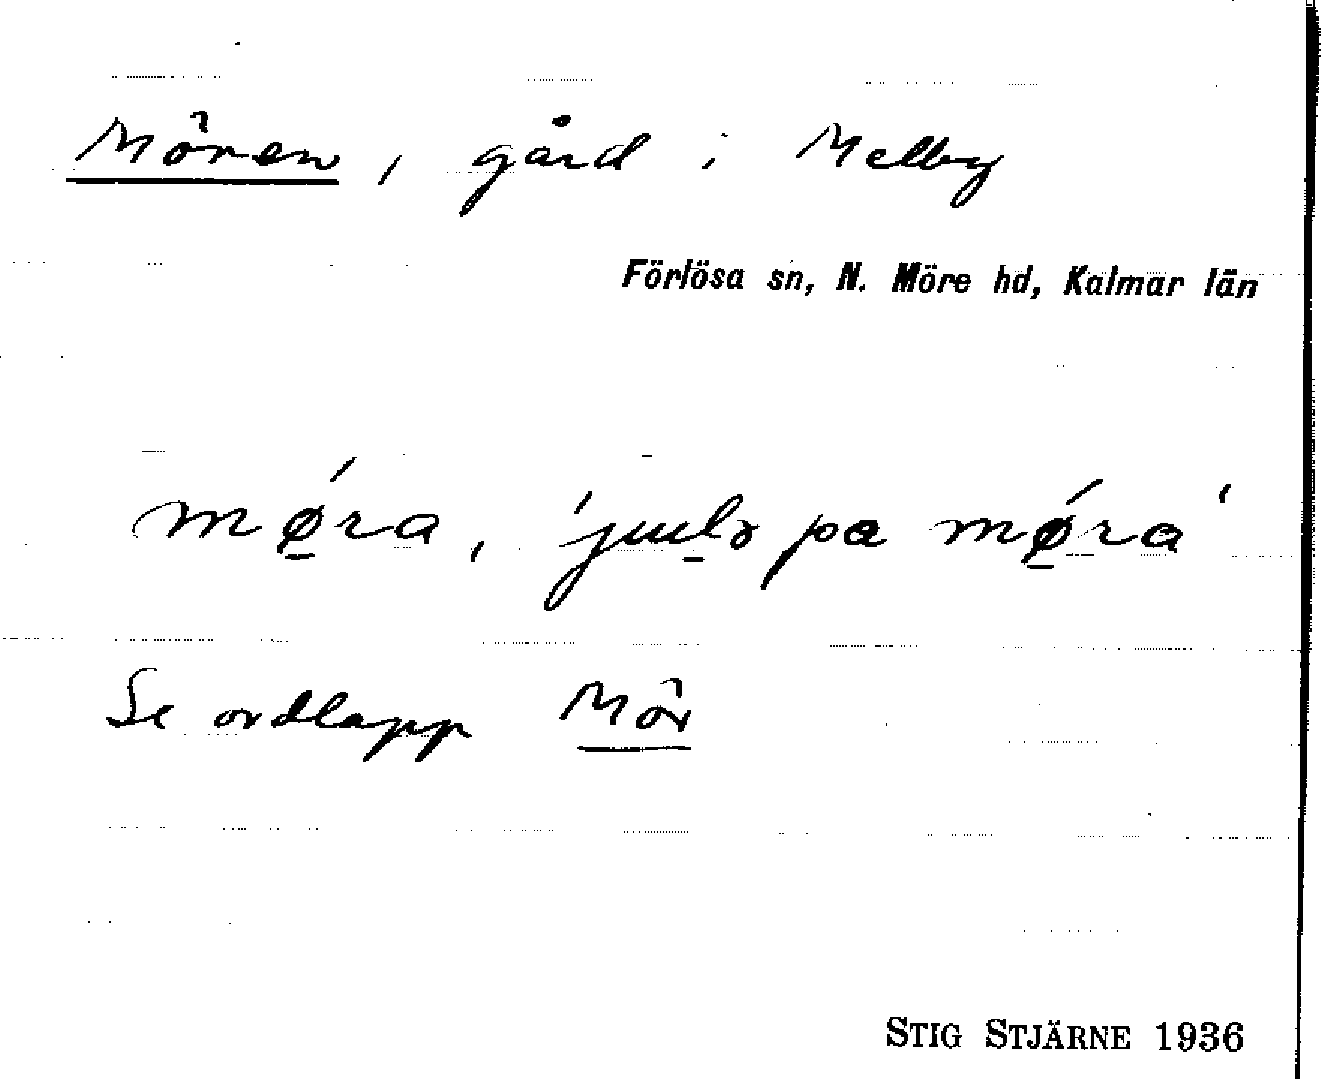 Mören, gård i Melby
Förlösa sn, N. Möre hd, Kalmar län
mǿ̱ra, pa mǿ̱ra'
Se ordlapp Mör
STIG STJÄRNE 1936